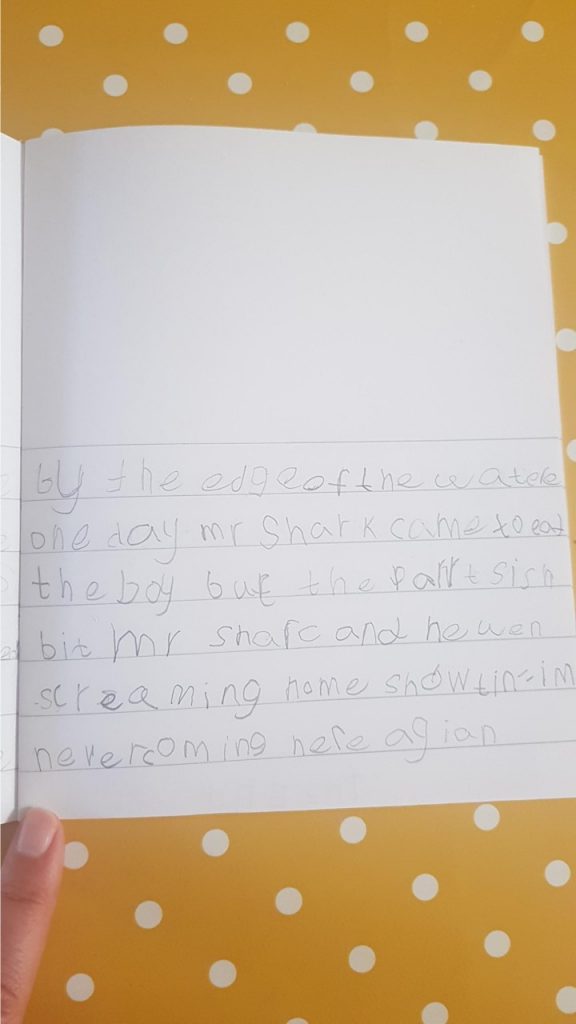 by the edge of the watere
one day mr Shark came to eat
the boy but the parrt sish
bit Mr sharc and he wen
screaming home showting im
never coming here agian